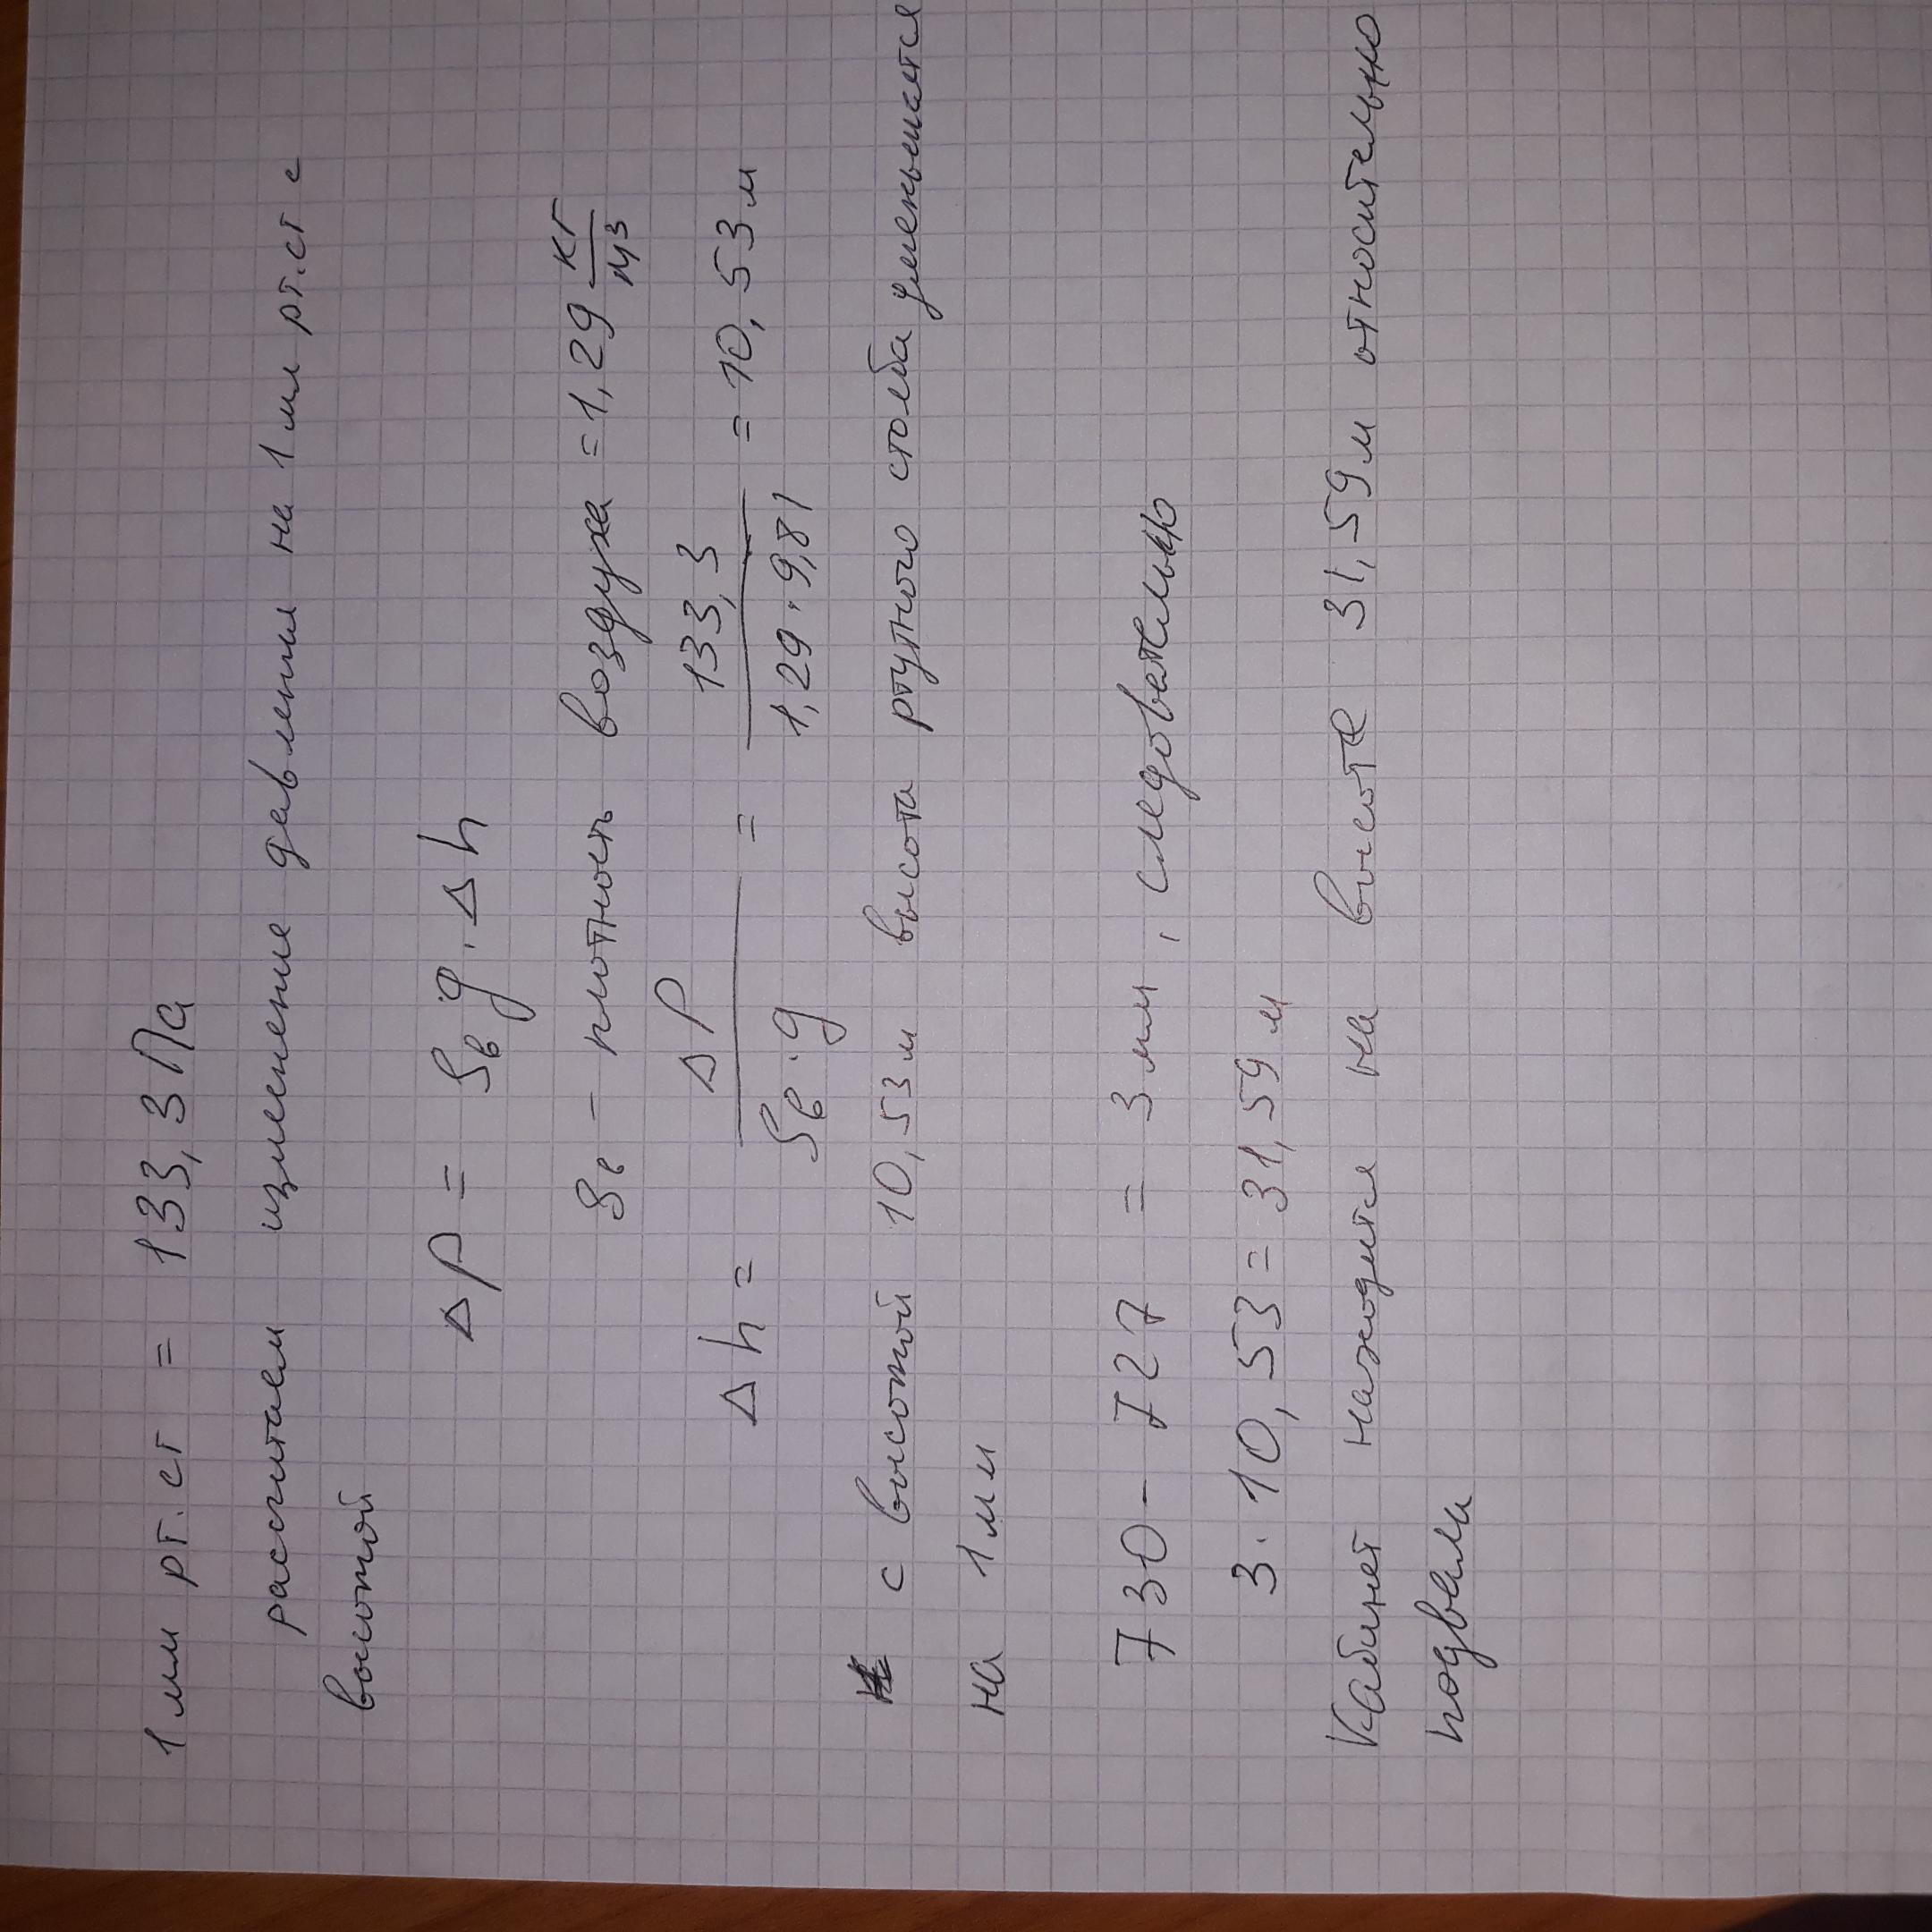 1 мм рт.ст = 133,3 Па
рассчитаем изменение давления на 1 мм рт.ст с
высотой
ΔP = ρв g · Δh
ρв - плотность воздуха = 1,29 кг/м³
Δh = ΔP / ρв · g = 133,3 / 1,29 · 9,81 = 10,53 м
с высотой 10,53 м высота ртутного столба уменьшается
на 1 мм
730 - 727 = 3 мм, следовательно
3 · 10,53 = 31,59 м
Кабинет находится на высоте 31,59 м относительно
подвала